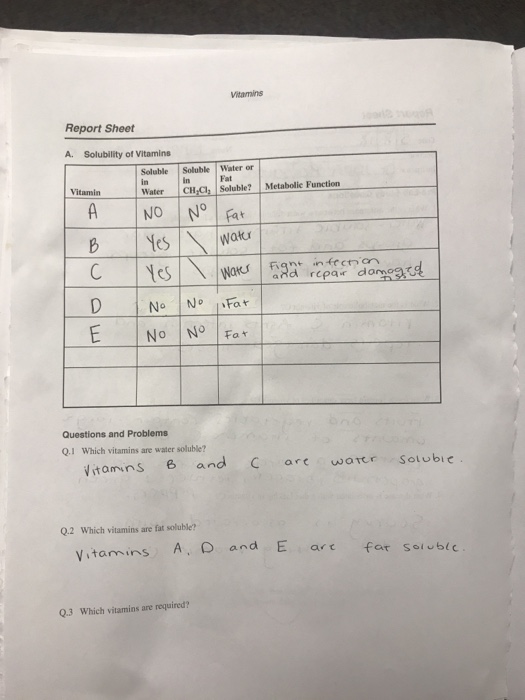 Vitamins
Report Sheet
A. Solubility of Vitamins
Vitamin Soluble in Water Soluble in CH₂Cl₂ Water or Fat Soluble? Metabolic Function
A NO NO Fat
B Yes \ Water
C Yes \ Water Fight infection and repair damaged tissue
D No No Fat
E No NO Fat
Questions and Problems
Q.1 Which vitamins are water soluble?
Vitamins B and C are water soluble.
Q.2 Which vitamins are fat soluble?
Vitamins A, D and E are fat soluble.
Q.3 Which vitamins are required?